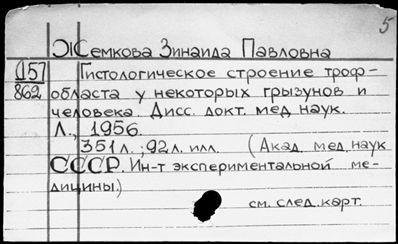 5
Жемкова Зинаида Павловна
Д157
862
Гистологическое строение троф-
области у некоторых грызунов и
человека. Дисс. докт. мед. наук.
Л., 1956.
351 л.; 92 л. илл. (Акад. мед. наук
СССР. Ин-т экспериментальной ме-
дицины.)
см. след. карт.